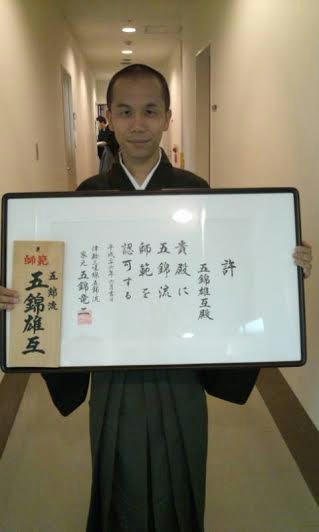 許
五錦雄互殿
貴殿に
五錦流
師範を
認可する
平成二十年月吉日
津軽三味線五錦流
家元 五錦竜二
師範
五錦流
五錦雄互